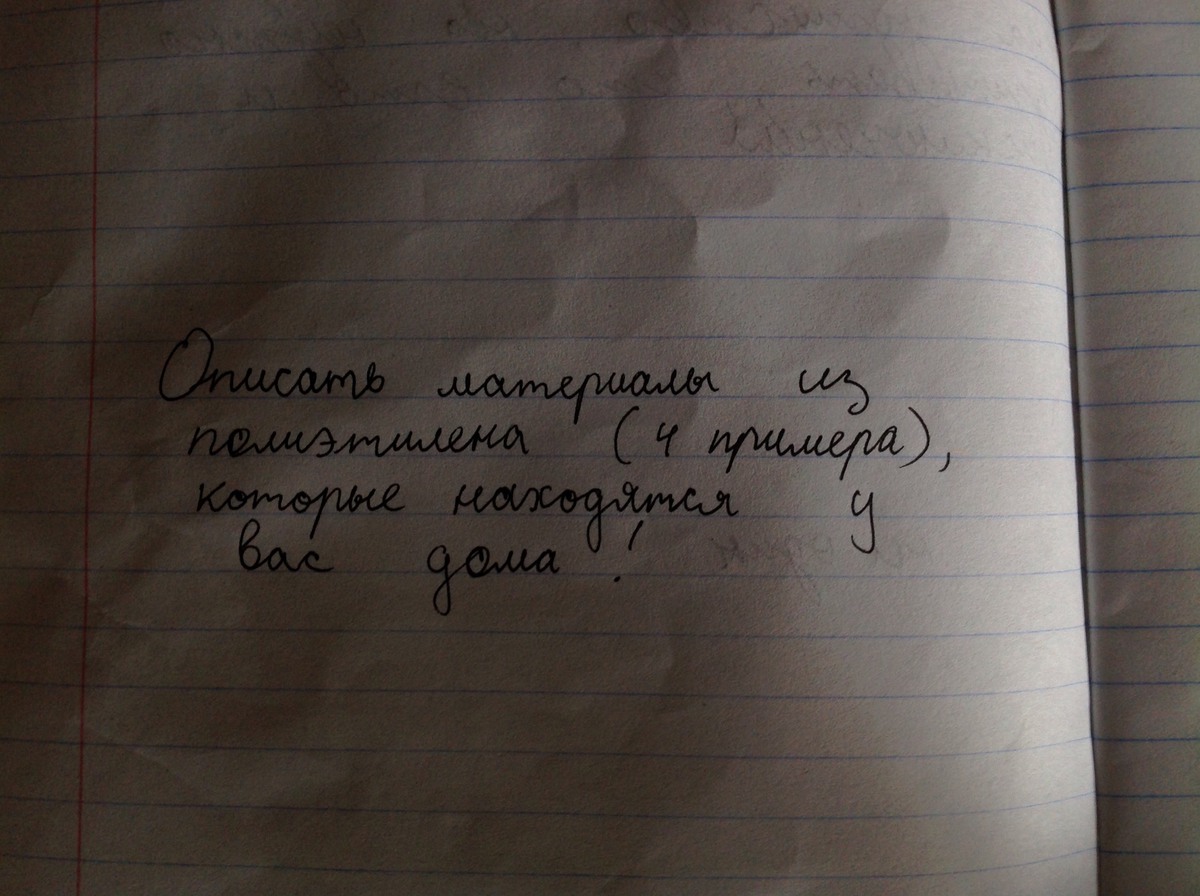 Описать материалы из
полиэтилена (4 примера),
которые находятся у
вас дома!